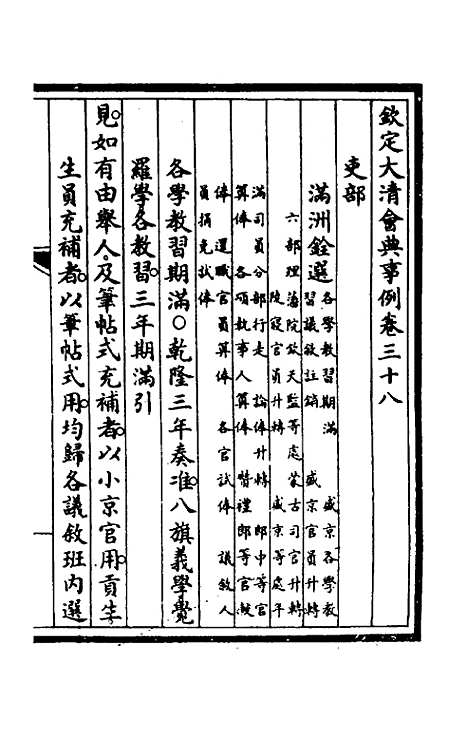 欽定大清會典事例卷三十八
吏部
滿洲銓選
各學教習期滿 盛京各學教
習議敘註銷 盛京官員升轉
六部理藩院欽天監等處蒙古司官升轉
陵寢官員升轉 盛京等處年
滿司員分部行走 論俸升轉 郎中等官
算俸 各項執事人算俸 贊禮郎等官候
俸 還職官員算俸 各官試俸 議敘人
員捐免試俸
各學教習期滿〇乾隆三年奏准八旗義學覺
羅學各教習三年期滿引
見如有由舉人及筆帖式充補者以小京官用貢生
生員充補者以筆帖式用均歸各議敘班內選